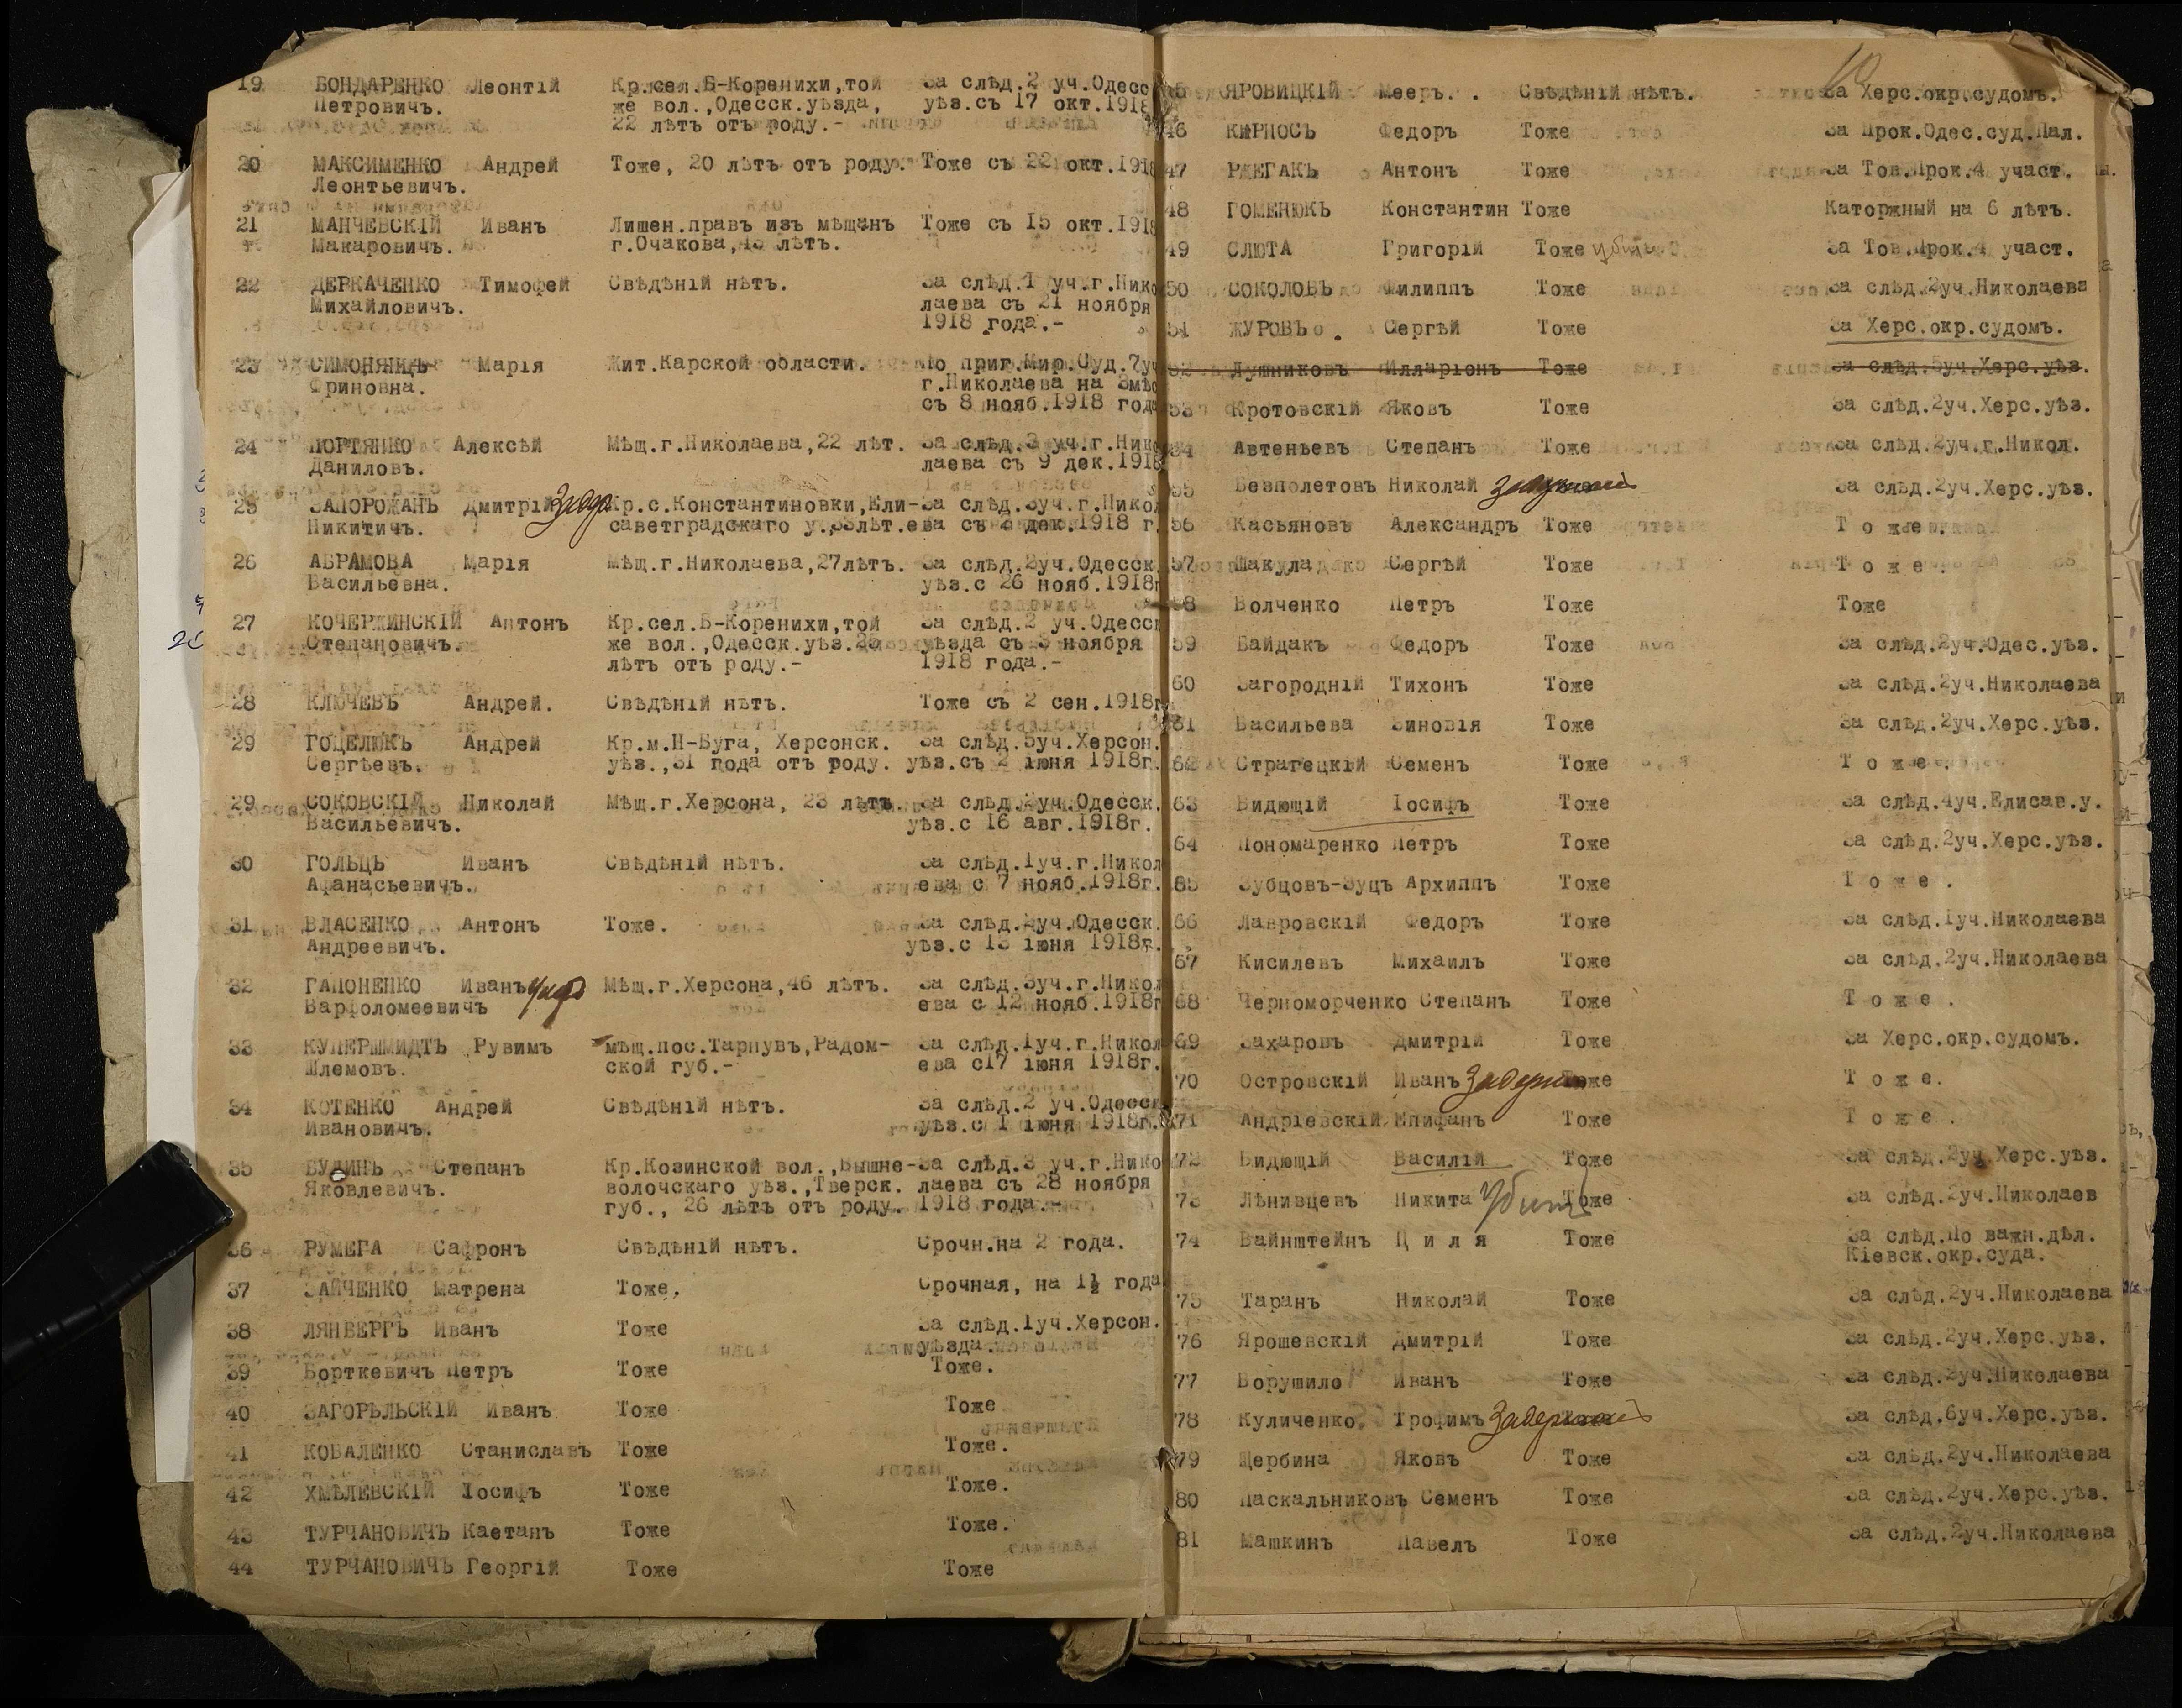 19 БОНДАРЕНКО Леонтій Кр.сел.Б-Коренихи,той За слѣд.2 уч.Одесс
Петровичъ. же вол.,Одесск.уѣзда, уѣз.съ 17 окт.1918
22 лѣтъ отъ роду.-
20 МАКСИМЕНКО Андрей Тоже, 20 лѣтъ отъ роду. Тоже съ 22 окт.1918
Леонтьевичъ.
21 МАНЧЕВСКІЙ Иванъ Лишен.правъ изъ мѣщанъ Тоже съ 15 окт.1918
Макаровичъ. г.Очакова, лѣтъ.
22 ДЕРКАЧЕНКО Тимофей Свѣдѣній нѣтъ. За слѣд.1 уч.г.Нико
Михайловичъ. лаева съ 21 ноября
1918 года.-
23 СИМОНЯНЦЪ Марія Жит.Карской области. По приг.Мир.Суд.7уч
Фриновна. г.Николаева на 3мѣс
съ 8 нояб.1918 года
24 ПОРТЯНКО Алексѣй Мѣщ.г.Николаева,22 лѣт. За слѣд.3 уч.г.Нико
Даниловъ. лаева съ 9 дек.1918
25 ЗАПОРОЖАНЪ Дмитрій Кр.с.Константиновки,Ели- За слѣд.3уч.г.Никол
Никитичъ. саветградскаго у.,33лѣт. ева съ дек.1918 г.
26 АБРАМОВА Марія Мѣщ.г.Николаева,27лѣтъ. За слѣд.2уч.Одесск.
Васильевна. уѣз.с 26 нояб.1918г
27 КОЧЕРЖИНСКІЙ Антонъ Кр.сел.Б-Коренихи,той За слѣд.2 уч.Одесск
Степановичъ. же вол.,Одесск.уѣз.25 уѣзда съ 3 ноября
лѣтъ отъ роду.- 1918 года.-
28 КЛЮЧЕВЪ Андрей. Свѣдѣній нѣтъ. Тоже съ 2 сен.1918г
29 ГОЦЕЛЮКЪ Андрей Кр.м.Н-Буга, Херсонск. За слѣд.5уч.Херсон.
Сергѣевъ. уѣз.,31 года отъ роду. уѣз.съ 2 іюня 1918г.
29 СОКОВСКІЙ Николай Мѣщ.г.Херсона, 23 лѣтъ. За слѣд.2уч.Одесск.
Васильевичъ. уѣз.с 16 авг.1918г.
30 ГОЛЬЦЪ Иванъ Свѣдѣній нѣтъ. За слѣд.1уч.г.Никол
Афанасьевичъ. ева с 7 нояб.1918г.
31 ВЛАСЕНКО Антонъ Тоже. За слѣд.2уч.Одесск.
Андреевичъ. уѣз.с 13 іюня 1918г.
32 ГАПОНЕНКО Иванъ Мѣщ.г.Херсона,46 лѣтъ. За слѣд.3уч.г.Никол
Варфоломеевичъ ева с 12 нояб.1918г
33 КУПЕРШМИДТЪ Рувимъ мѣщ.пос.Тарнувъ,Радом- За слѣд.1уч.г.Никол
Шлемовъ. ской губ.- ева с17 іюня 1918г.
34 КОТЕНКО Андрей Свѣдѣній нѣтъ. За слѣд.2 уч.Одесск
Ивановичъ. уѣз.с 1 іюня 1918г.
35 БУДИНЪ Степанъ Кр.Козинской вол.,Вышне- За слѣд.3 уч.г.Нико
Яковлевичъ. волочскаго уѣз.,Тверск. лаева съ 28 ноября
губ., 26 лѣтъ отъ роду. 1918 года.-
36 РУМЕГА Сафронъ Свѣдѣній нѣтъ. Срочн.на 2 года.
37 ЗАЙЧЕНКО Матрена Тоже. Срочная, на 1½ года
38 ЛЯНБЕРГЪ Иванъ Тоже За слѣд.1уч.Херсон.
уѣзда.
39 Борткевичъ Петръ Тоже Тоже.
40 ЗАГОРѢЛЬСКІЙ Иванъ Тоже Тоже
41 КОВАЛЕНКО Станиславъ Тоже Тоже.
42 ХМѢЛЕВСКІЙ Іосифъ Тоже Тоже.
43 ТУРЧАНОВИЧЪ Каетанъ Тоже Тоже.
44 ТУРЧАНОВИЧЪ Георгій Тоже Тоже
10
5 ЯРОВИЦКІЙ Мееръ. Свѣдѣній нѣтъ. За Херс.окр.судомъ.
46 КЫРНОСЪ Федоръ Тоже За Прок.Одес.суд.Пал.
47 РЖЕГАКЪ Антонъ Тоже За Тов.Прок.4 участ.
48 ГОМЕНЮКЪ Константин Тоже Каторжный на 6 лѣтъ.
49 СЛЮТА Григорій Тоже убитъ За Тов.Прок.4 участ.
50 СОКОЛОВЪ Филиппъ Тоже За слѣд.2уч.Николаева
51 ЖУРОВЪ . Сергѣй Тоже За Херс.окр.судомъ.
52 Лушниковъ Илларіонъ Тоже За слѣд.5уч.Херс.уѣз.
53 Кротовскій Яковъ Тоже За слѣд.2уч.Херс.уѣз.
54 Автеньевъ Степанъ Тоже За слѣд.2уч.г.Никол.
55 Безполетовъ Николай За слѣд.2уч.Херс.уѣз.
56 Касьяновъ Александръ Тоже Т о ж е.
57 Шакула Сергѣй Тоже Т о ж е .
58 Волченко Петръ Тоже Тоже
59 Байдакъ Федоръ Тоже За слѣд.2уч.Одес.уѣз.
60 Загородній Тихонъ Тоже За слѣд.2уч.Николаева
61 Васильева Зиновія Тоже За слѣд.2уч.Херс.уѣз.
62 Страгецкій Семенъ Тоже Т о ж е .
63 Видющій Іосифъ Тоже За слѣд.4уч.Елисав.у.
64 Пономаренко Петръ Тоже За слѣд.2уч.Херс.уѣз.
65 Зубцовъ-Зуцъ Архиппъ Тоже Т о ж е .
66 Лавровскій Федоръ Тоже За слѣд.1уч.Николаева
67 Кисилевъ Михаилъ Тоже За слѣд.2уч.Николаева
68 Черноморченко Степанъ Тоже Т о ж е .
69 Захаровъ Дмитрій Тоже За Херс.окр.судомъ.
70 Островскій Иванъ Тоже Т о ж е.
71 Андріевскій Епифанъ Тоже Т о ж е .
72 Видющій Василій Тоже За слѣд.2уч.Херс.уѣз.
73 Лѣнивцевъ Никита убитъ Тоже За слѣд.2уч.Николаев
74 Вайнштейнъ Ц и л я Тоже За слѣд.По важн.дѣл.
Кіевск.окр.суда.
75 Таранъ Николай Тоже За слѣд.2уч.Николаева
76 Ярошевскій Дмитрій Тоже За слѣд.2уч.Херс.уѣз.
77 Ворушило Иванъ Тоже За слѣд.2уч.Николаева
78 Куличенко Трофимъ За слѣд.6уч.Херс.уѣз.
79 Щербина Яковъ Тоже За слѣд.2уч.Николаева
80 Паскальниковъ Семенъ Тоже За слѣд.2уч.Херс.уѣз.
81 Машкинъ Павелъ Тоже За слѣд.2уч.Николаева